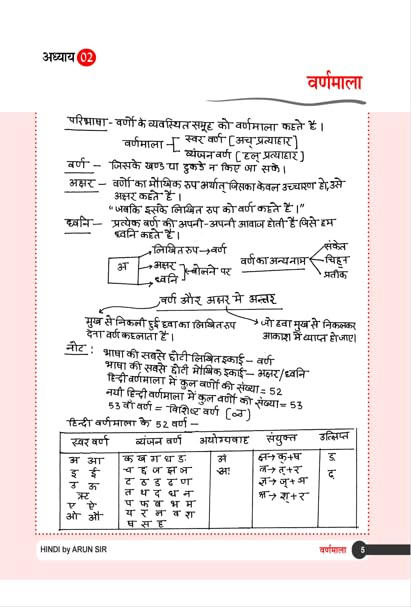 अध्याय 02
वर्णमाला
परिभाषा - वर्णो के व्यवस्थित समूह को वर्णमाला कहते हैं।
वर्णमाला - स्वर वर्ण [अच् प्रत्याहार]
व्यंजन वर्ण [हल् प्रत्याहार]
वर्ण - जिसके खण्ड या टुकड़े न किए जा सके।
अक्षर - वर्णो का मौखिक रुप अर्थात् जिसका केवल उच्चारण हो, उसे
अक्षर कहते हैं।
"जबकि इसके लिखित रुप को वर्ण कहते हैं।"
ध्वनि - प्रत्येक वर्ण की अपनी-अपनी आवाज होती हैं जिसे हम
ध्वनि कहते हैं।
लिखित रुप → वर्ण
अ → अक्षर बोलने पर
→ ध्वनि
वर्ण का अन्य नाम संकेत
चिह्न
प्रतीक
वर्ण और अक्षर में अन्तर
मुख से निकली हुई हवा का लिखित रुप
देना वर्ण कहलाता हैं।
जो हवा मुख से निकलकर
आकाश में व्याप्त हो जाए।
नोट :
भाषा की सबसे छोटी लिखित इकाई - वर्ण
भाषा की सबसे छोटी मौखिक इकाई - अक्षर/ध्वनि
हिन्दी वर्णमाला में कुल वर्णो की संख्या = 52
नयी हिन्दी वर्णमाला में कुल वर्णो की संख्या = 53
53 वाँ वर्ण = विशिष्ट वर्ण
हिन्दी वर्णमाला के 52 वर्ण -
स्वर वर्ण व्यंजन वर्ण अयोग्यवाह संयुक्त उत्क्षिप्त
अ आ क ख ग घ ङ अं क्ष → क् + ष ड़
इ ई च छ ज झ ञ अः त्र → त् + र ढ़
उ ऊ ट ठ ड ढ ण ज्ञ → ज् + ञ
ऋ त थ द ध न श्र → श् + र
ए ऐ प फ ब भ म
ओ औ य र ल व श
ष स ह
HINDI by ARUN SIR
वर्णमाला 5